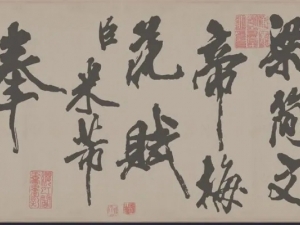 梁简文
帝梅
花賦
臣米芾
奉